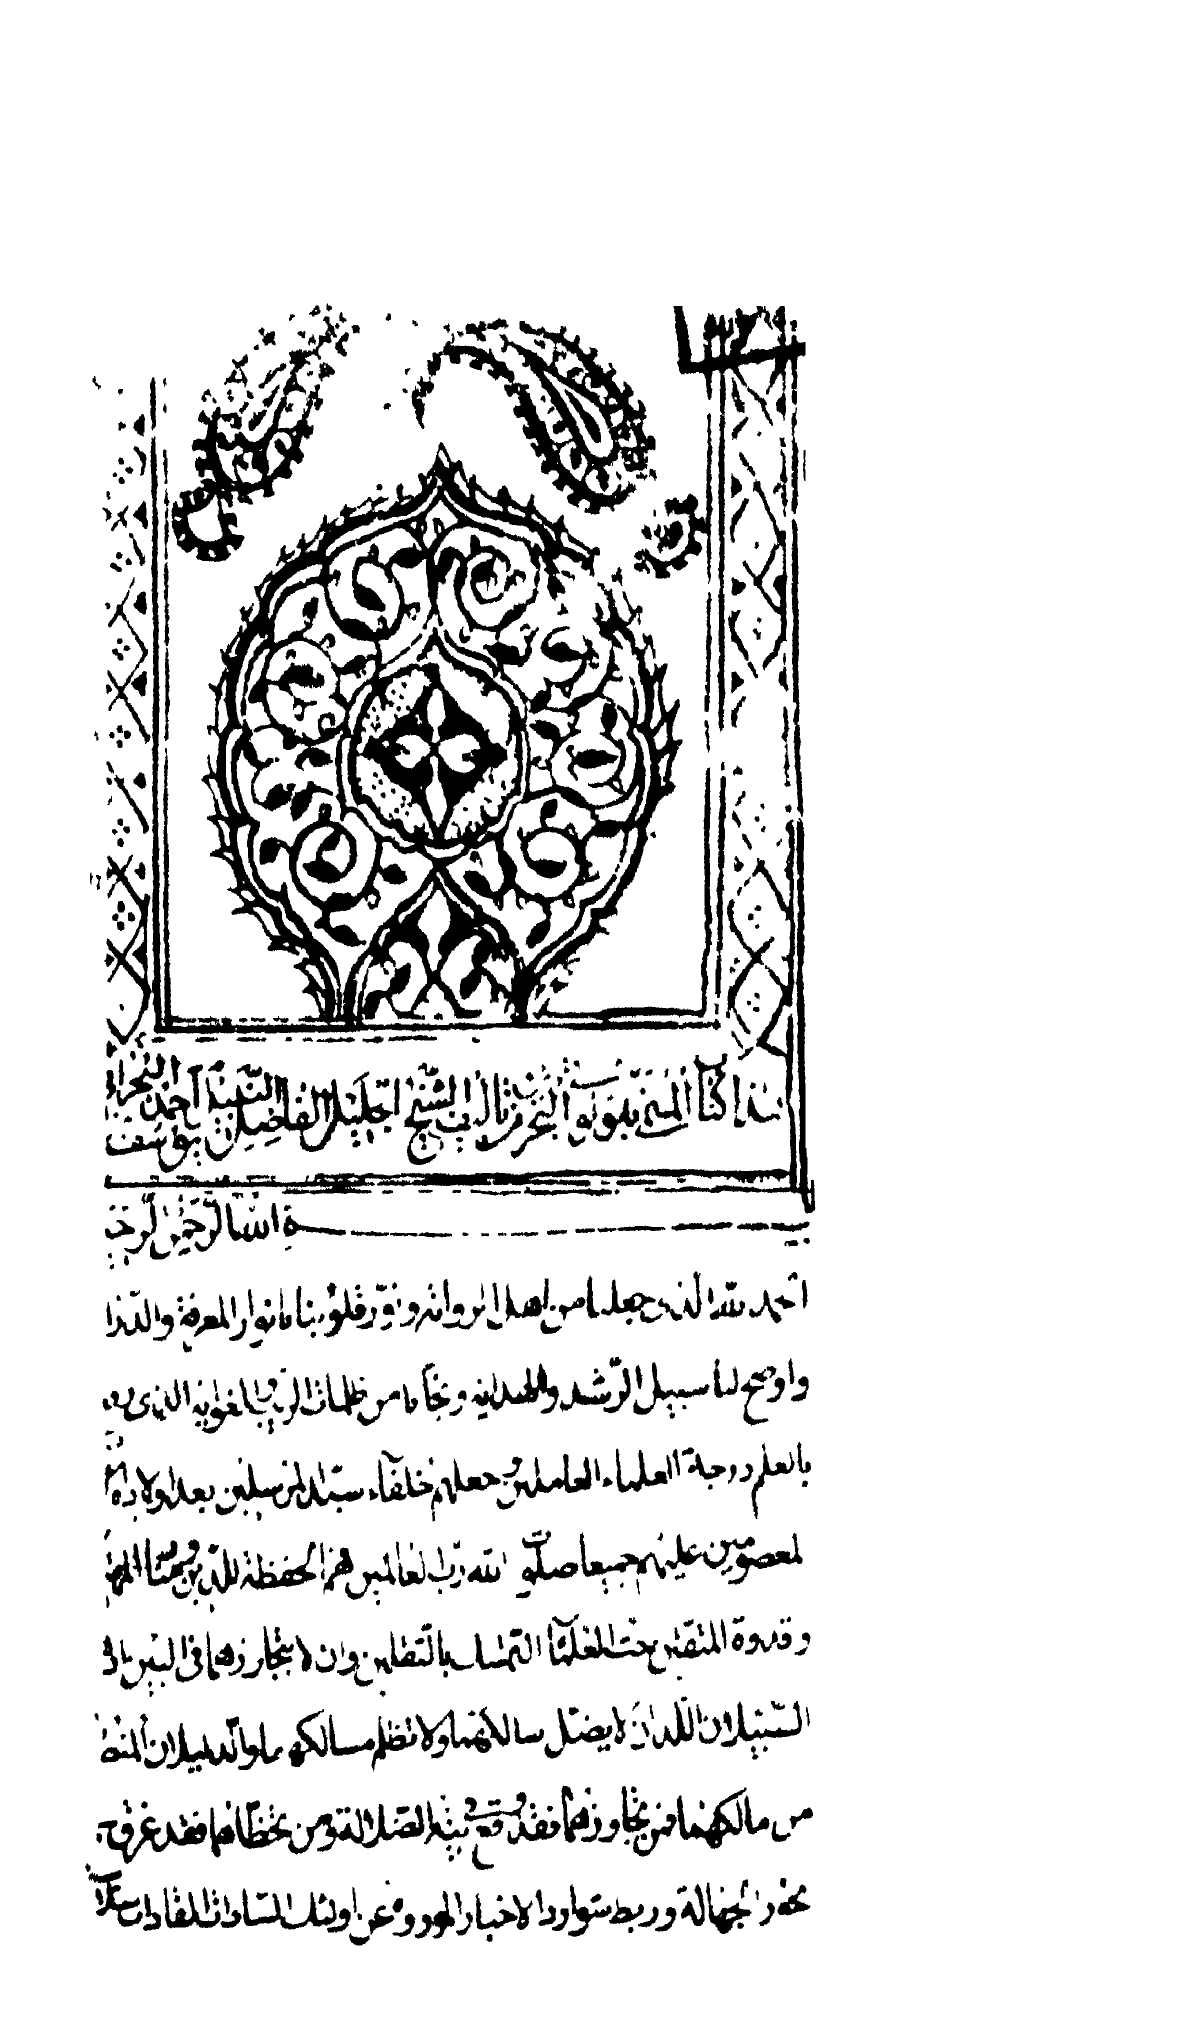 هذا كتاب المسمى بلؤلؤة البحرين تأليف الشيخ الجليل الفاضل النبيه احمد البحراني بن يوسف
بسم الله الرحمن الرحيم
الحمد لله الذي جعلنا من اهل الرواية ونور قلوبنا بانوار المعرفة والدراية
واوضح لنا سبيل الرشد والهداية ونجانا من ظلمات الريب والغواية الذي
بالعلم درجة العلماء العاملين وجعلهم خلفاء سيد المرسلين بعد اولاده
المعصومين عليهم جميعا صلوة الله رب العالمين هم الحفظة للدين
وقدوة المتقين حث العلماء التمسك بالثقلين وان لا يتجاوزهما في البين
السبيلان اللذان لا يضل سالكهما ولا تظلم مسالكهما والدليلان
من مالكهما فمن تجاوزهما فقد وقع تيه الضلالة ومن تخطاهما فقد غرق
بحور الجهالة وربط الاخبار عن اولئك السادات القادات